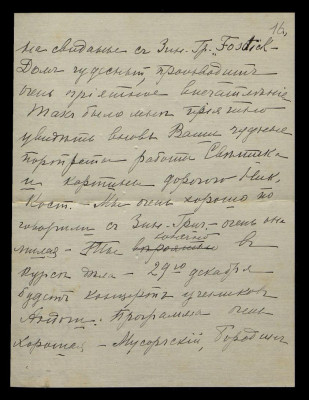 16.
на свиданье съ Зин. Гр. "Fosdick"
Домъ чудесный, производитъ
очень пріятное впечатлѣніе
Такъ было мнѣ пріятно
увидѣть вновь Ваши чудные
портреты работы Святика
и картины дорогого Ник.
Конст. - Мы очень хорошо по
говорили съ Зин. Григ. - очень она
милая - въ
курсѣ дѣла - 29го декабря
будетъ концертъ учениковъ
Программа очень
хорошая - Мусоргскій, Бородинъ